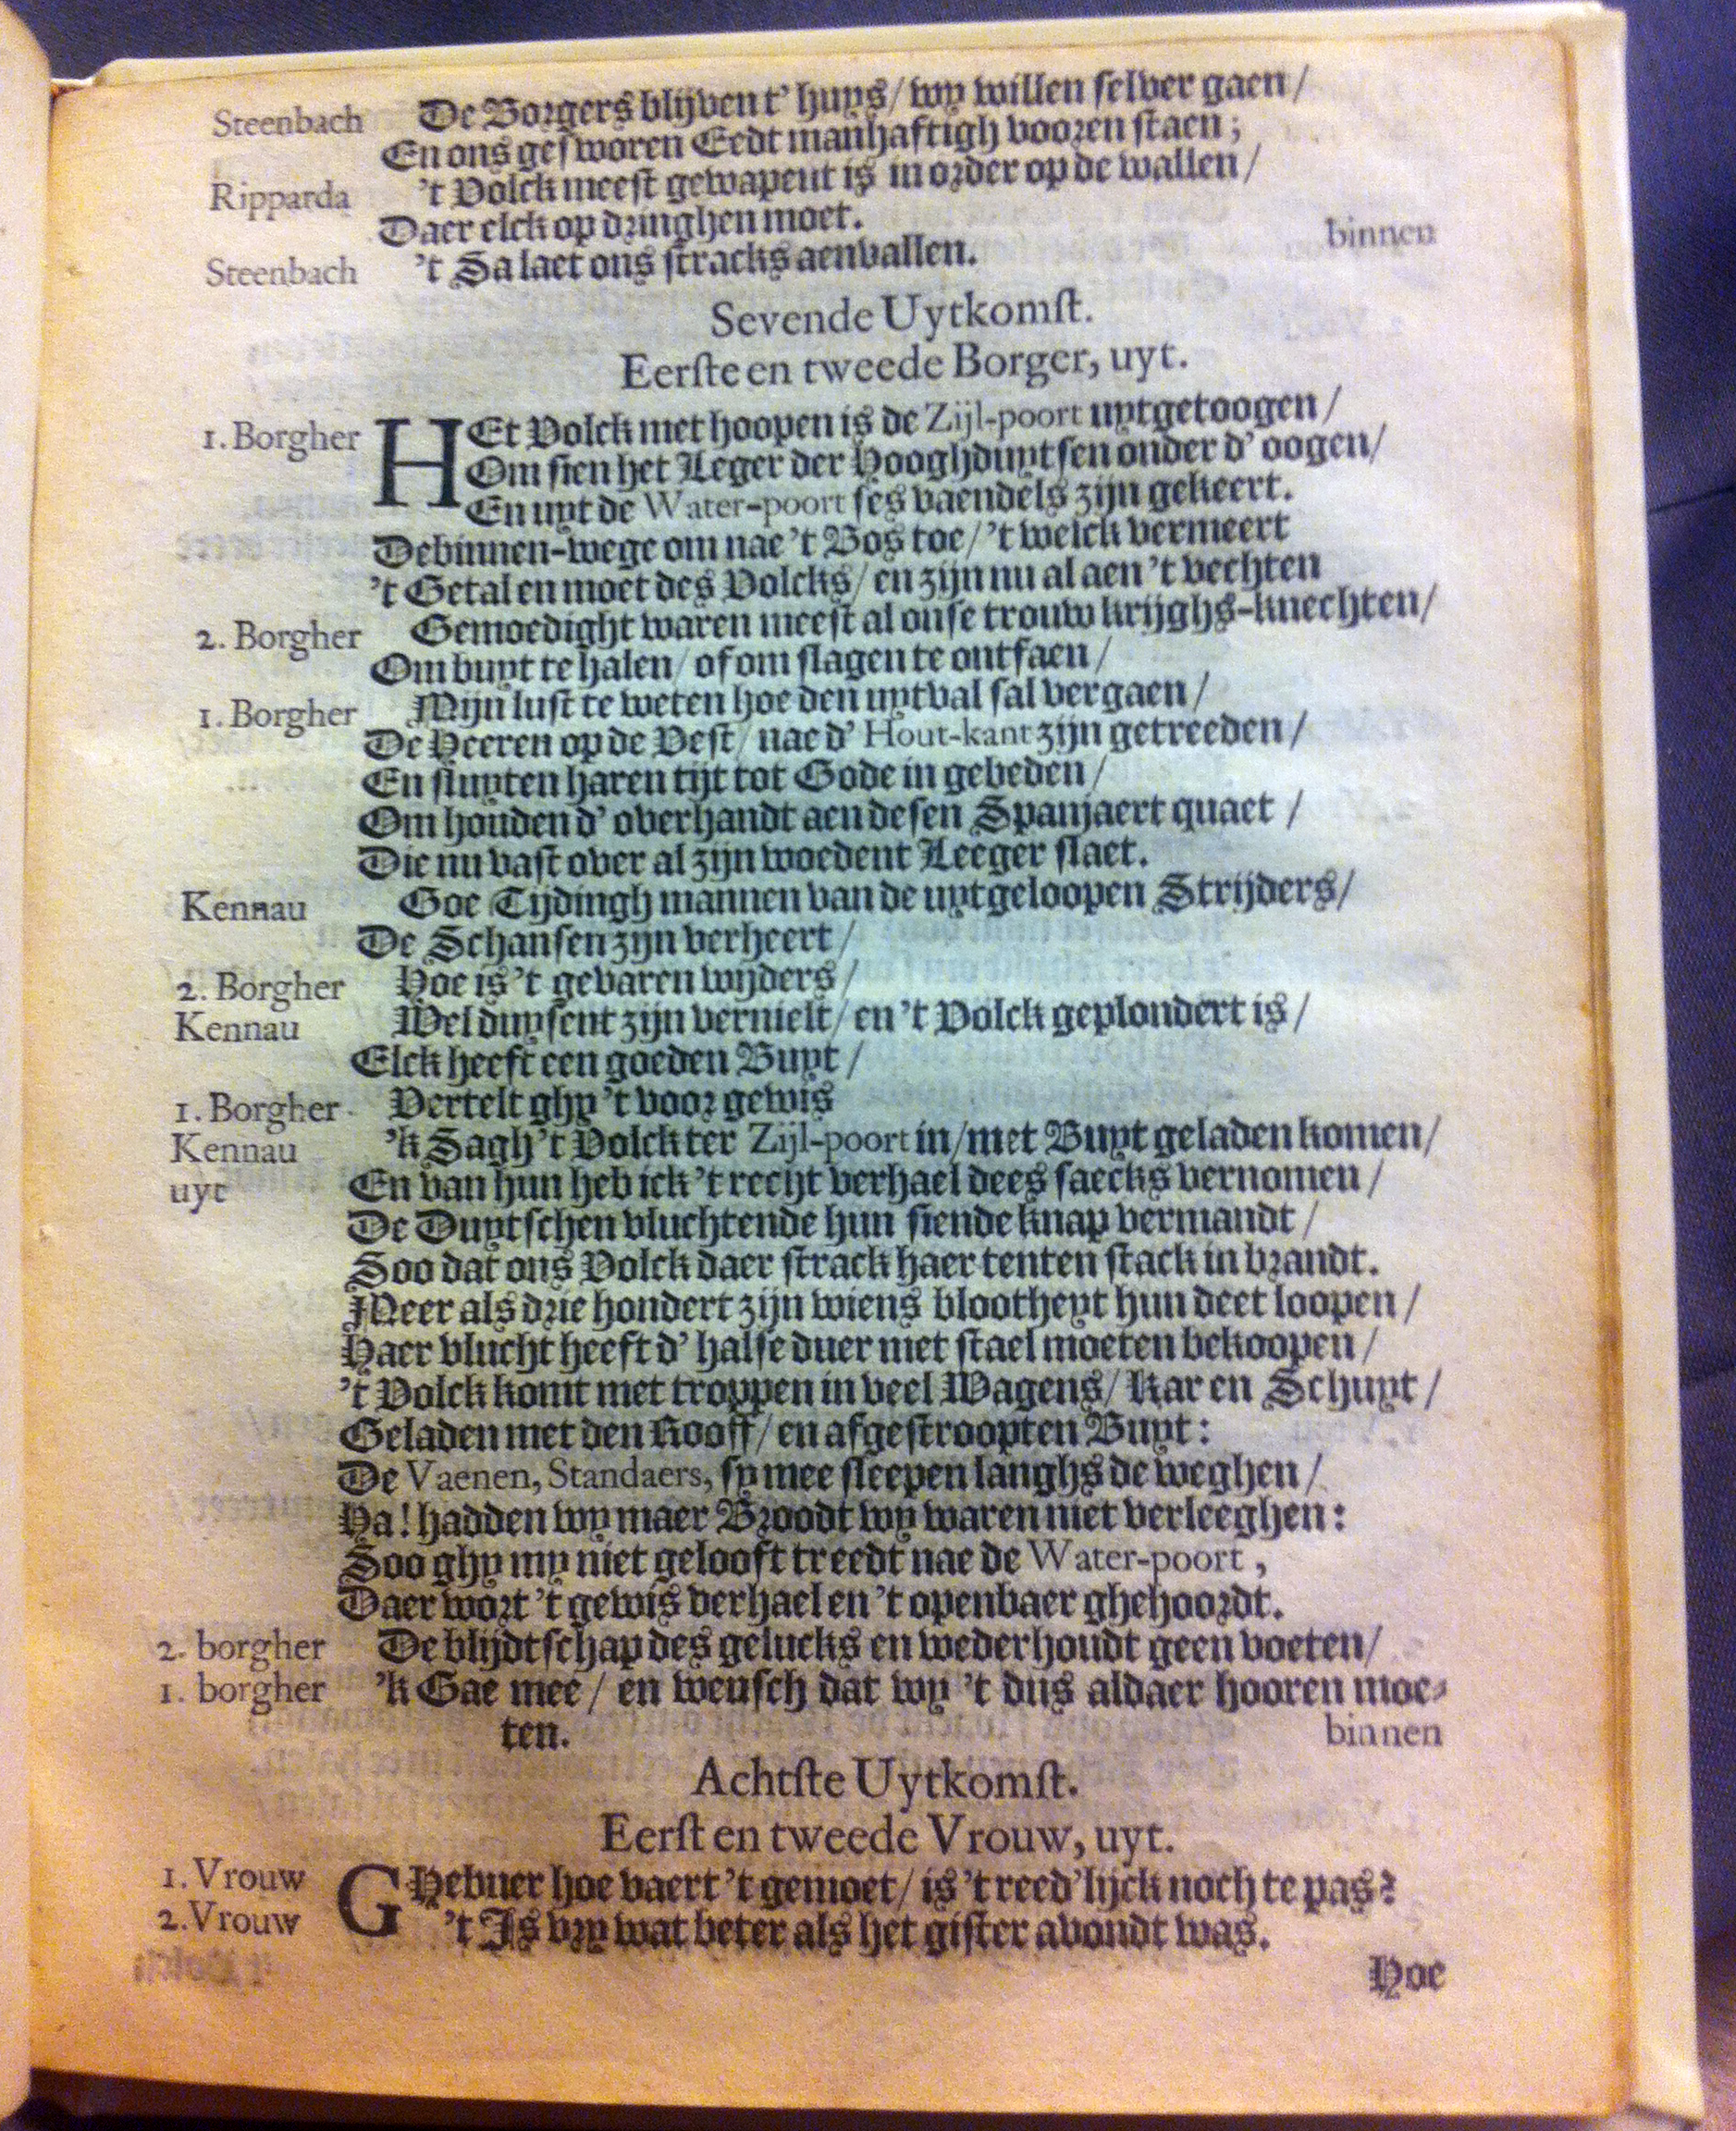 Steenbach De Borgers blijven t' huys/ wy willen selver gaen/
En ons gesworen Eedt manhaftigh vooren staen;
Ripparda 't Volck meest gewapent is in order op de wallen/
Daer elck op dringhen moet. binnen
Steenbach 't Sa laet ons stracks aenvallen.
Sevende Uytkomst.
Eerste en tweede Borger, uyt.
1. Borgher HEt Volck met hoopen is de Zijl-poort uytgetoogen/
Om sien het Leger der Hooghduytsen onder d' oogen/
En uyt de Water-poort ses vaendels zijn gekeert.
De binnen-wege om nae 't Bos toe/ 't welck vermeert
't Getal en moet des Volcks/ en zijn nu al aen 't vechten
2. Borgher Gemoedight waren meest al onse trouw krijghs-knechten/
Om buyt te halen/ of om slagen te ontfaen/
1. Borgher Mijn lust te weten hoe den uytval sal vergaen/
De Heeren op de Vest/ nae d' Hout-kant zijn getreeden/
En sluyten haren tijt tot Gode in gebeden/
Om houden d' overhandt aen desen Spanjaert quaet/
Die nu vast over al zijn woedent Leeger slaet.
Kennau Goe Tijdingh mannen van de uytgeloopen Strijders/
De Schansen zijn verheert/
2. Borgher Hoe is 't gevaren wijders/
Kennau Wel duysent zijn vernielt/ en 't Volck geplondert is/
Elck heeft een goeden Buyt/
1. Borgher Vertelt ghy 't voor gewis
Kennau 'k Sagh 't Volck ter Zijl-poort in/ met Buyt geladen komen/
uyt En van hun heb ick 't recht verhael dees saecks vernomen/
De Duytschen vluchtende hun siende knap vermandt/
Soo dat ons Volck daer strack haer tenten stack in brandt.
Meer als drie hondert zijn wiens blootheyt hun deet loopen/
Haer vlucht heeft d' halse duer met stael moeten bekoopen/
't Volck komt met troppen in veel Wagens/ Kar en Schuyt/
Geladen met den Rooff/ en afgestroopten Buyt:
De Vaenen, Standaers, sy mee sleepen langhs de weghen/
Ha! hadden wy maer Broodt wy waren niet verleeghen:
Soo ghy my niet gelooft treedt nae de Water-poort,
Daer wort 't gewis verhael en 't openbaer ghehoordt.
2. borgher De blijdtschap des gelucks en wederhoudt geen voeten/
1. borgher 'k Gae mee/ en wensch dat wy 't dus aldaer hooren moe-
ten. binnen
Achtste Uytkomst.
Eerst en tweede Vrouw, uyt.
1. Vrouw GHebuer hoe vaert 't gemoet/ is 't reed'lijck noch te pas?
2. Vrouw 't Is vry wat beter als het gister avondt was.
Hoe